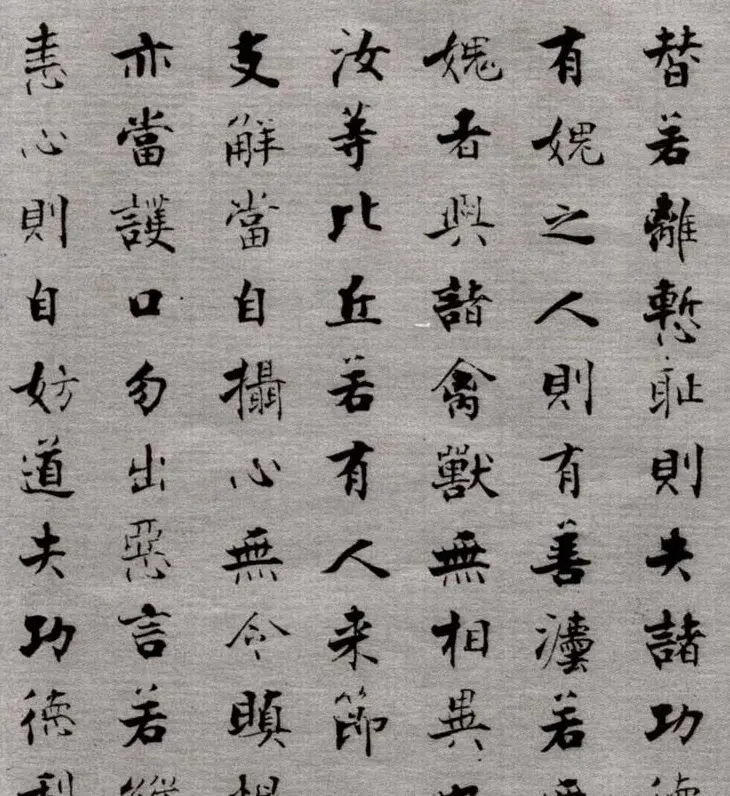 替若離慙耻則失諸功德
有媿之人則有善灋若無
媿者與諸禽獸無相異也
汝等比丘若有人来節
支解當自攝心無令瞋恨
亦當護口勿出惡言若縱
恚心則自妨道失功德利